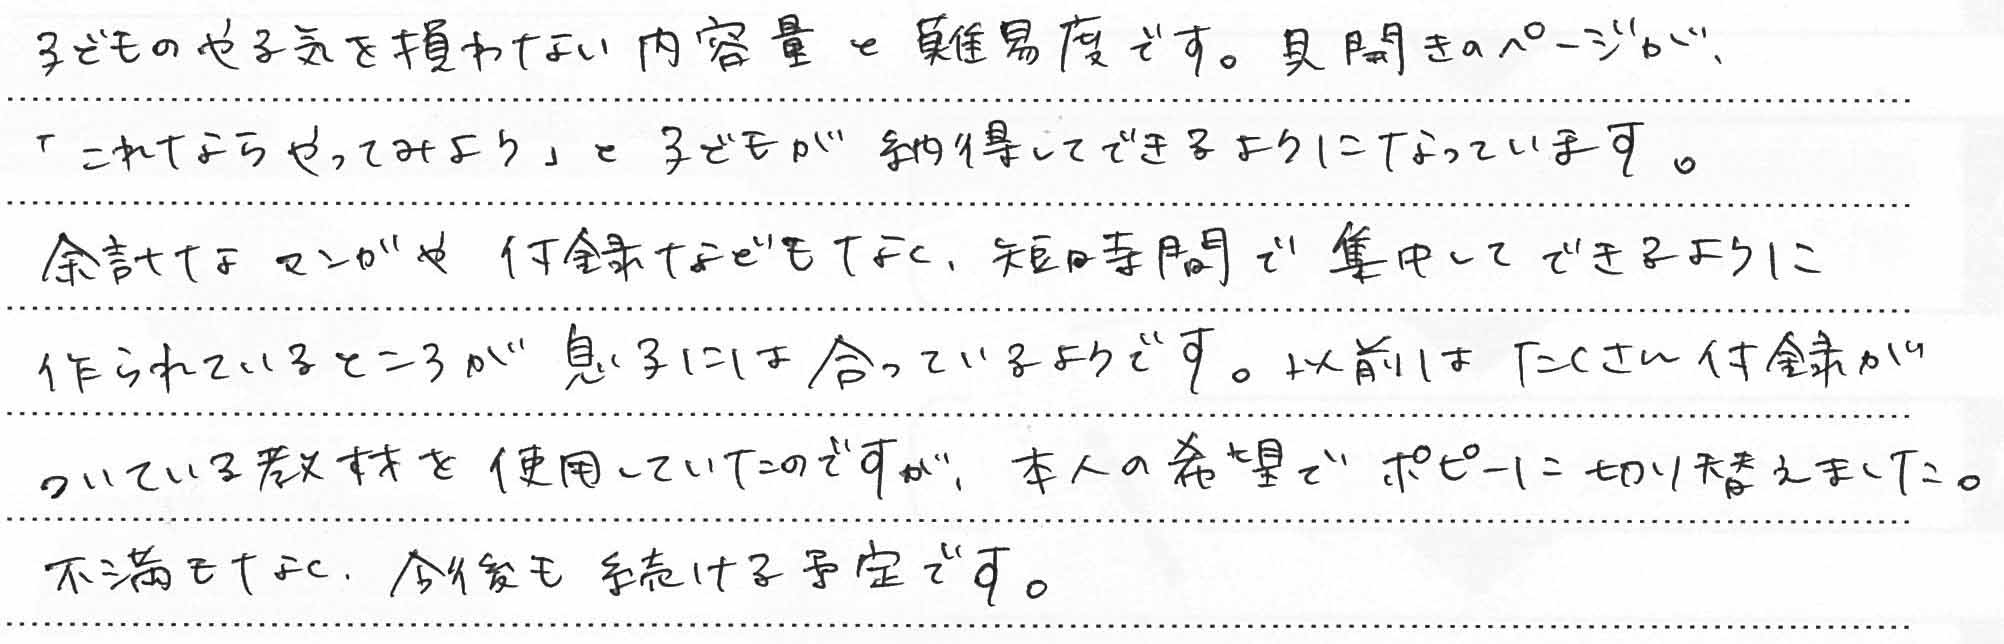 子どものやる気を損わない内容量と難易度です。見開きのページが、
「これならやってみよう」と子どもが納得してできるようになっています。
余計なマンガや付録などもなく、短時間で集中してできるように
作られているところが息子には合っているようです。以前はたくさん付録が
ついている教材を使用していたのですが、本人の希望でポピーに切り替えました。
不満もなく、今後も続ける予定です。